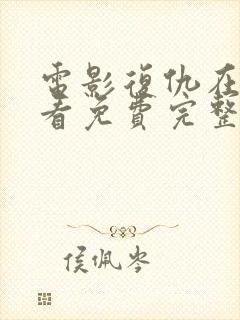 電影復仇在
看免費完整
侯佩岑